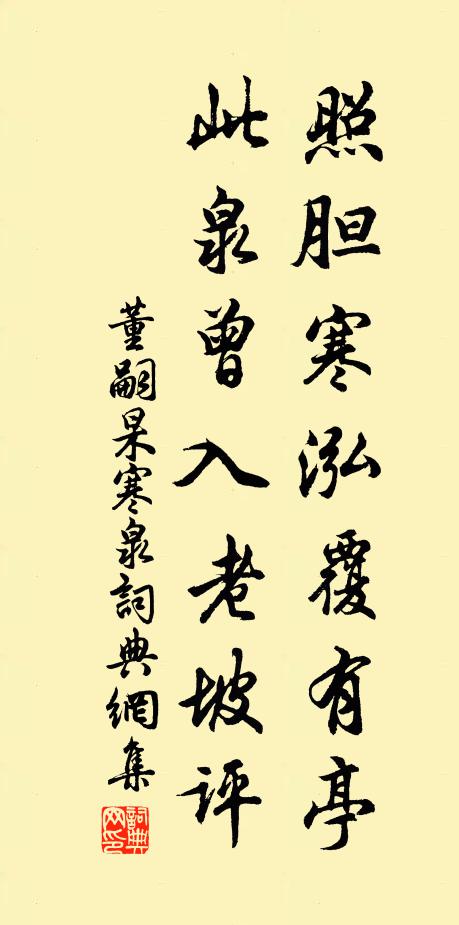 照胆寒泓覆有亭
此泉曾入老坡评
董嗣杲寒泉詞典網集
詞典網印